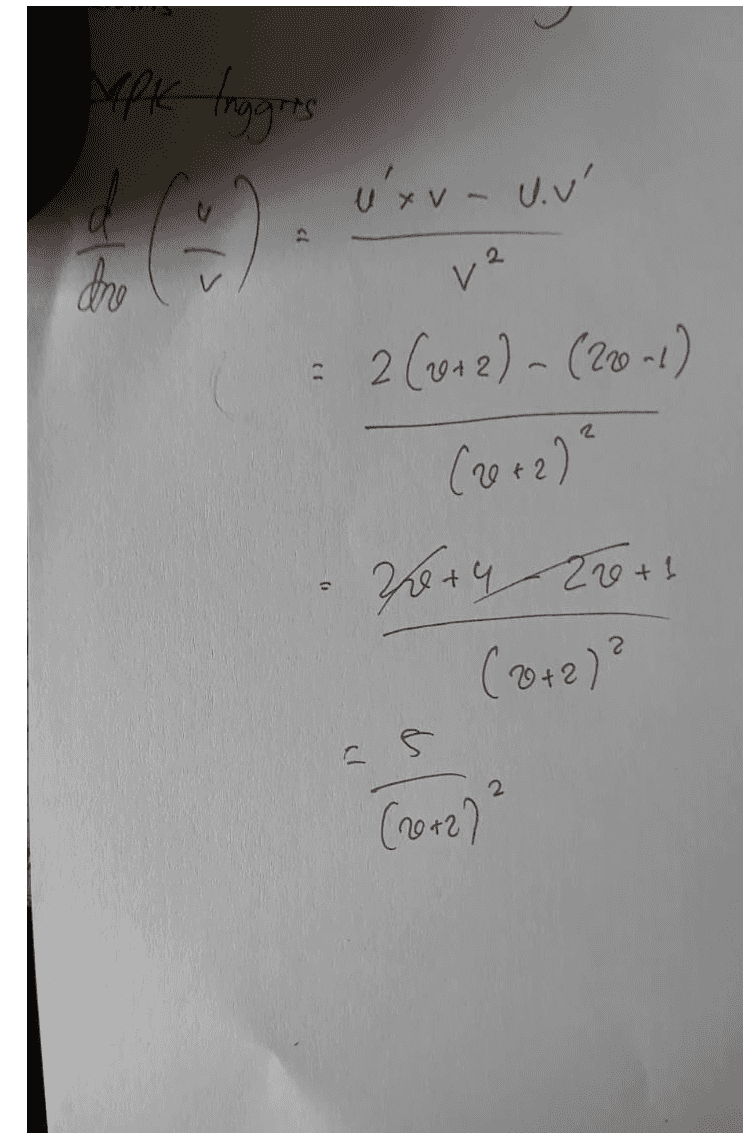 MPK Inggris
d/dx (u/v) = u' × v - u.v' / v²
= 2(x+2) - (2x-1) / (x+2)²
= 2x+4 - 2x+1 / (x+2)²
= 5 / (x+2)²